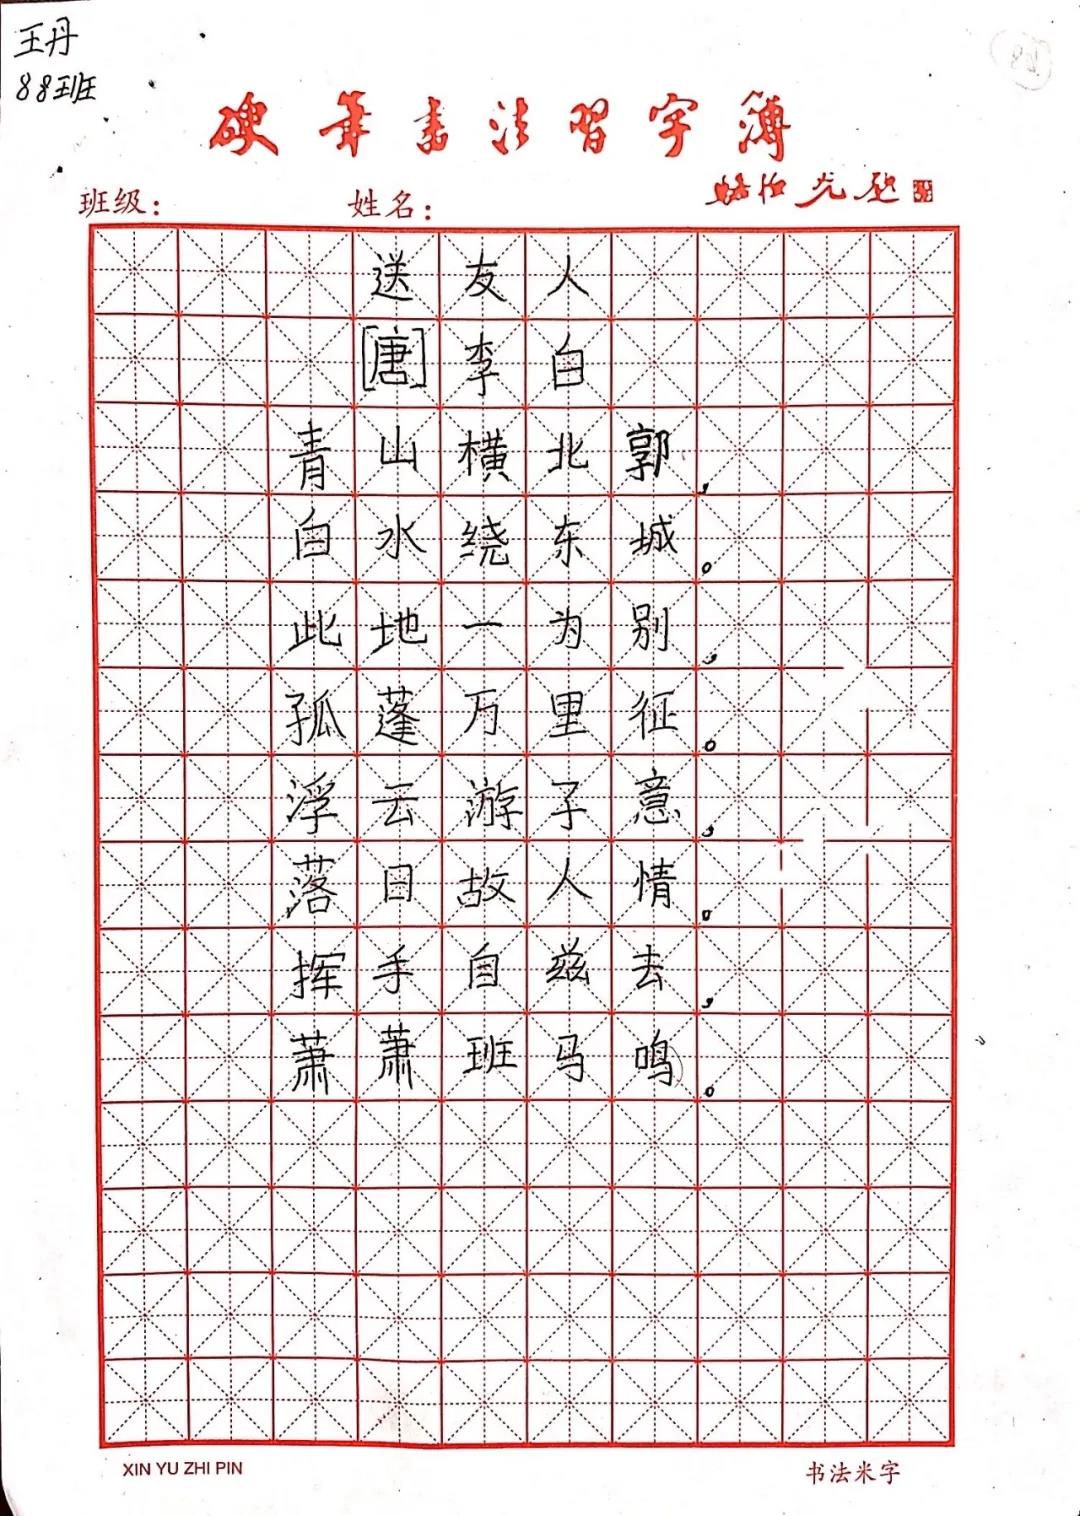 王丹
88班
硬笔书法習字簿
班级： 姓名：
送友人
[唐]李白
青山横北郭，
白水绕东城。
此地一为别，
孤蓬万里征。
浮云游子意，
落日故人情。
挥手自兹去，
萧萧班马鸣。
XIN YU ZHI PIN 书法米字